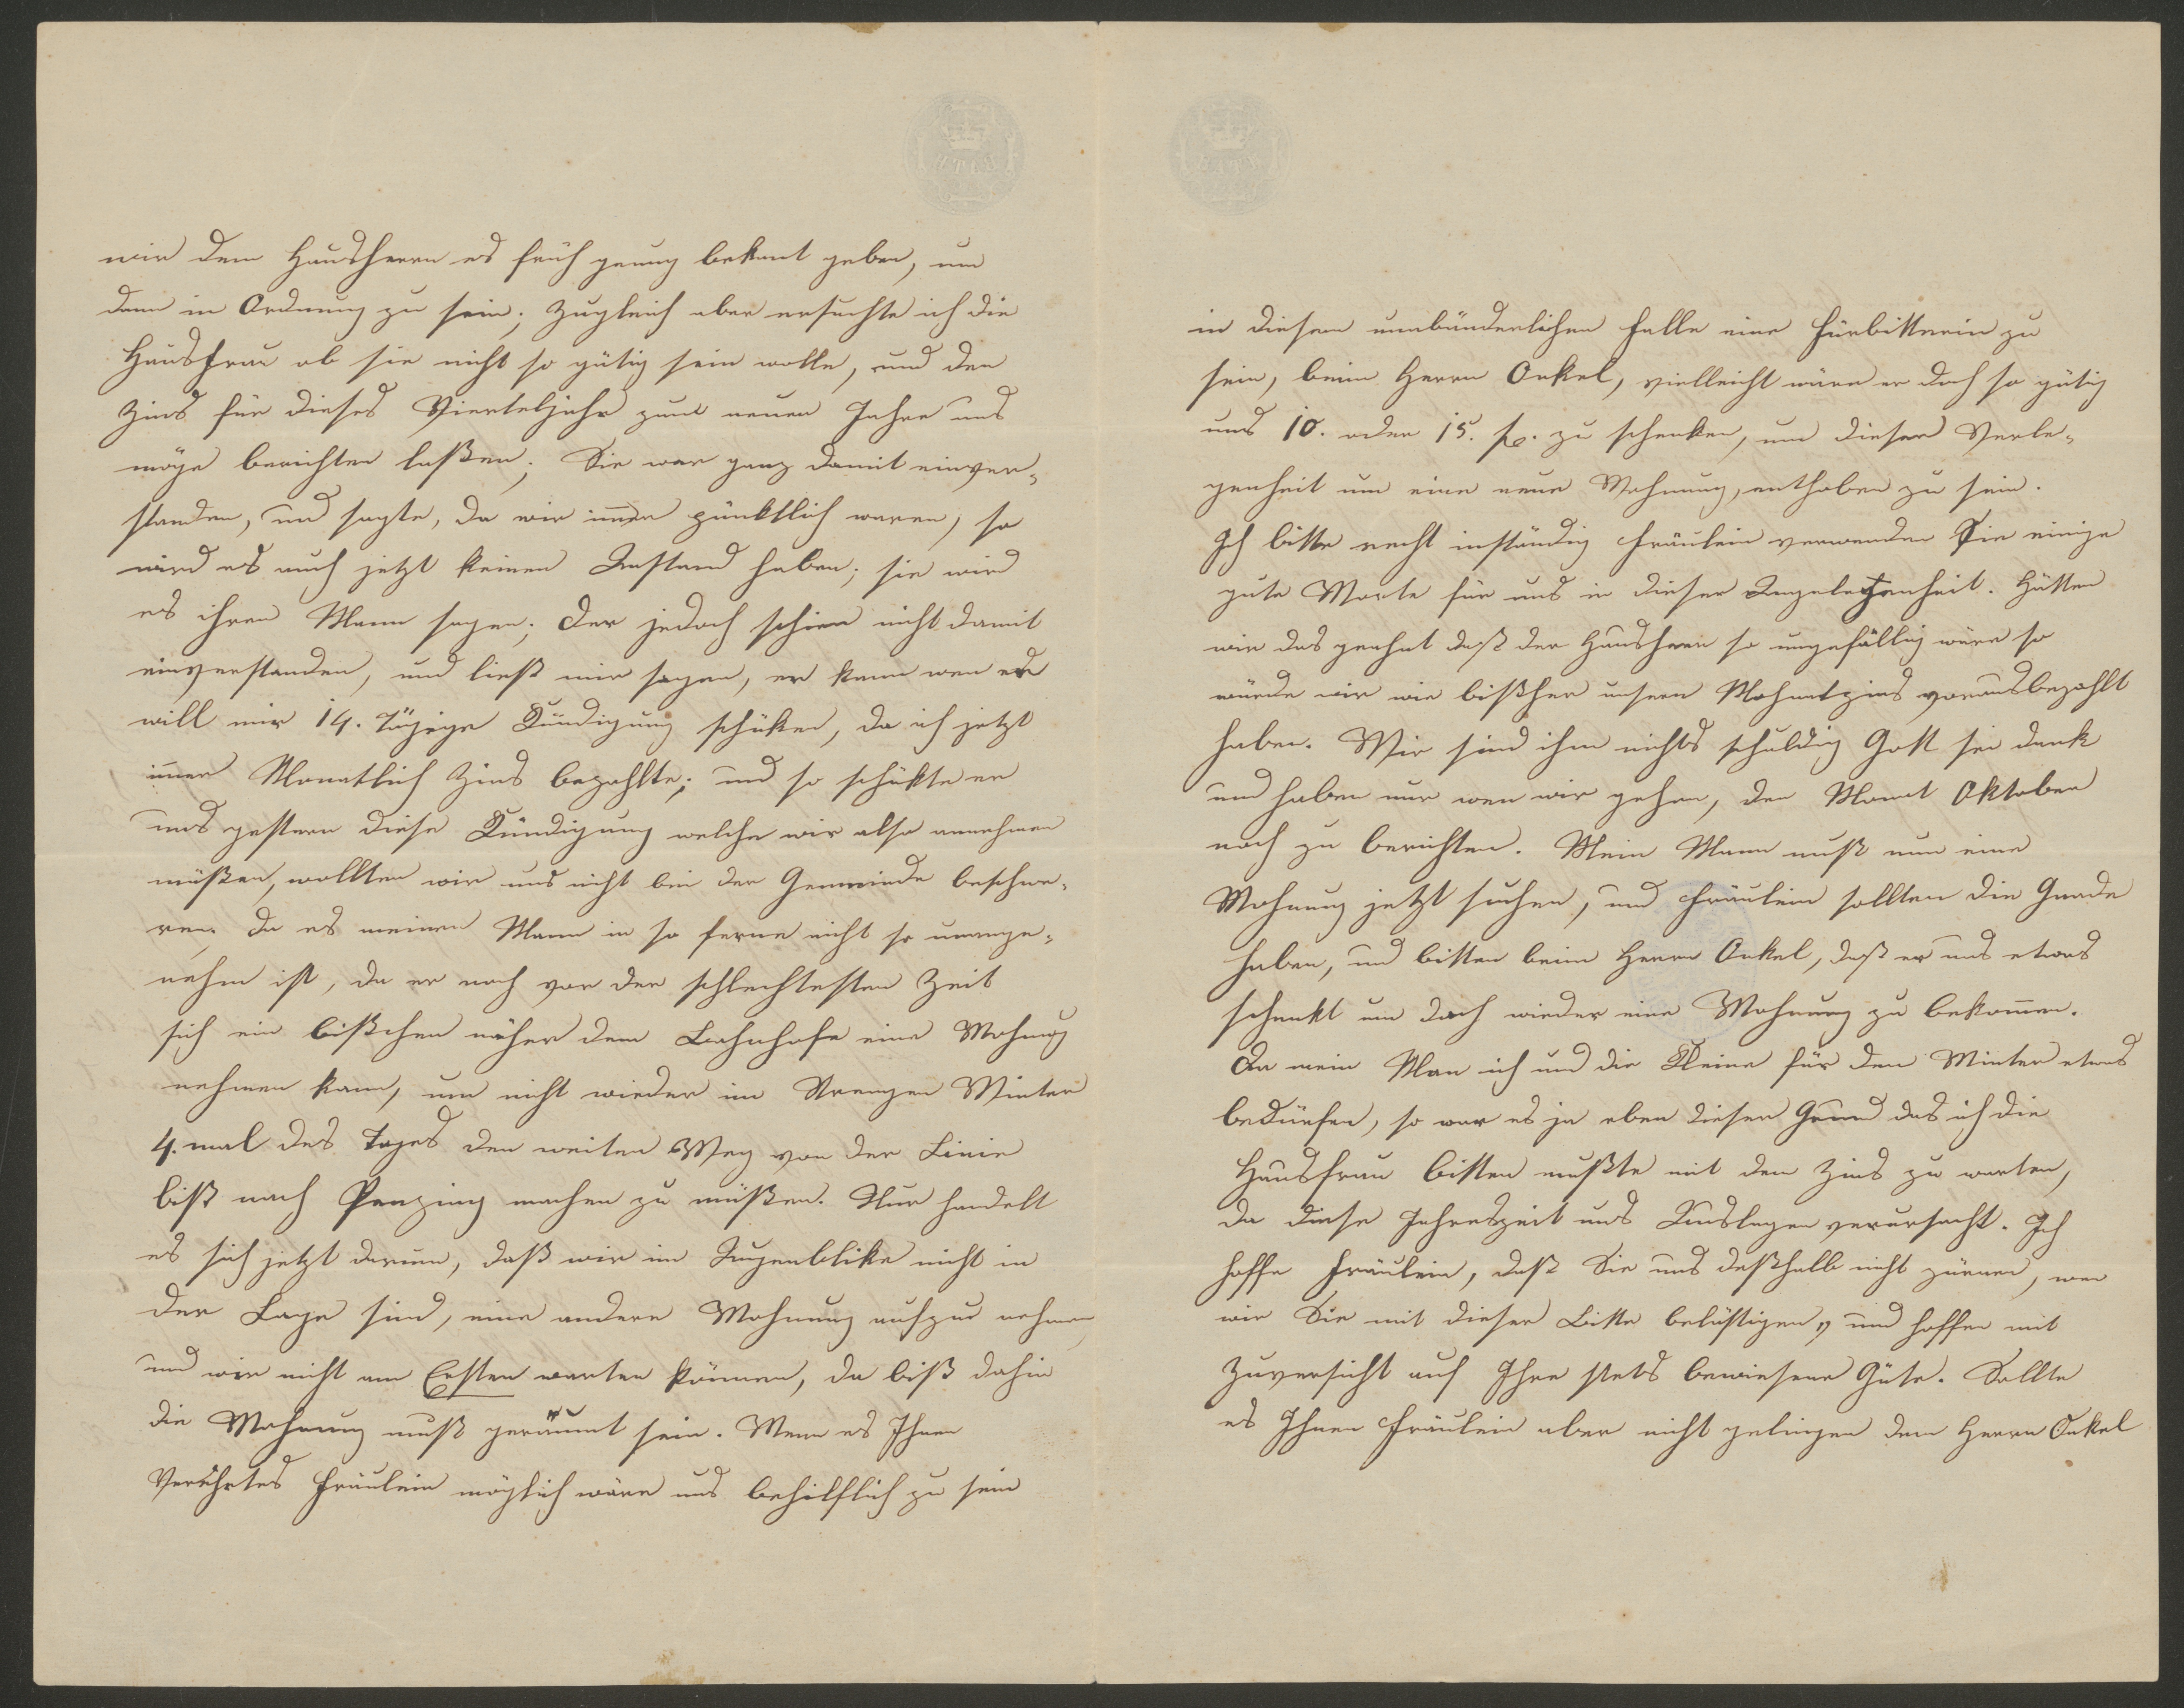 wir dem Hausherrn es früh genug bekant geben, um
dann in Ordnung zu sein; zugleich aber ersuchte ich die
Hausfrau ob sie nicht so gütig sein wolle, und den
Zins für dieses Vierteljahr zum neuen Jahre uns
möge berichten laßen. Sie war ganz damit einver-
standen, und sagte, da wir imer pünktlich waren, so
wird es auch jetzt keinen Anstand haben; sie wird
es ihren Mann sagen; der jedoch schien nicht damit
einverstanden, und ließ mir sagen, er kann wen er
will mir 14. Tägige Kündigung schüken, da ich jetzt
imer Monatlich Zins bezahlte; und so schükte er
uns gestern diese Kündigung welche wir also annehmen
müßen, wollten wir uns nicht bei der Gemeinde beschwe-
ren, da es meinen Mann in so ferne nicht so unange-
nehm ist, da er noch vor der schlechtesten Zeit
sich ein bißchen näher dem Bahnhofe eine Wohnung
nehmen kann, um nicht wieder im Strengen Winter
4. mal des Tages den weiten Weg von der Linie
biß nach Penzing machen zu müßen. Nur handelt
es sich jetzt darum, daß wir im Augenblike nicht in
der Lage sind, eine andere Wohnung aufzu nehmen
und wir nicht am Ersten warten können, da biß dahin
die Wohnung muß geräumt sein. Wenn es Ihnen
Verehrtes Fräulein möglich wäre uns behilflich zu sein
in diesem unabänderlichen Falle eine Fürbitterin zu
sein, beim Herrn Onkel, vielleicht wäre er doch so gütig
uns 10. oder 15. fl. zu schenken, um dieser Verle-
genheit um eine neue Wohnung, enthoben zu sein.
Ich bitte recht inständig Fräulein verwenden Sie einige
gute Worte für uns in dieser Angelegenheit. Hätten
wir das geahnt daß der Hausherr so ungefällig wäre so
würde wir wie bißher unsern Wohnetzins vorausbezahlt
haben. Wir sind ihm nichts schuldig Gott sei dank
und haben nur wen wir gehen, den Monat Oktober
noch zu berichten. Mein Mann muß nun eine
Wohnung jetzt suchen, und Fräulein sollten die Gnade
haben, und bitten beim Herrn Onkel, daß er uns etwas
schenkt um doch wieder eine Wohnung zu bekomen.
Da mein Man ich und die Kleine für den Winter etwas
bedürfen, so war es ja eben dieser Grund das ich die
Hausfrau bitten mußte mit den Zins zu warten,
da diese Jahreszeit uns Auslagen verursacht. Ich
hoffe Fräulein, daß Sie uns deßhalb nicht zürnen, wen
wir Sie mit dieser Bitte belästigen, und hoffen mit
Zuversicht auf Ihre stets bewiesene Güte. Sollte
es Ihnen Fräulein aber nicht gelingen dem Herrn Onkel